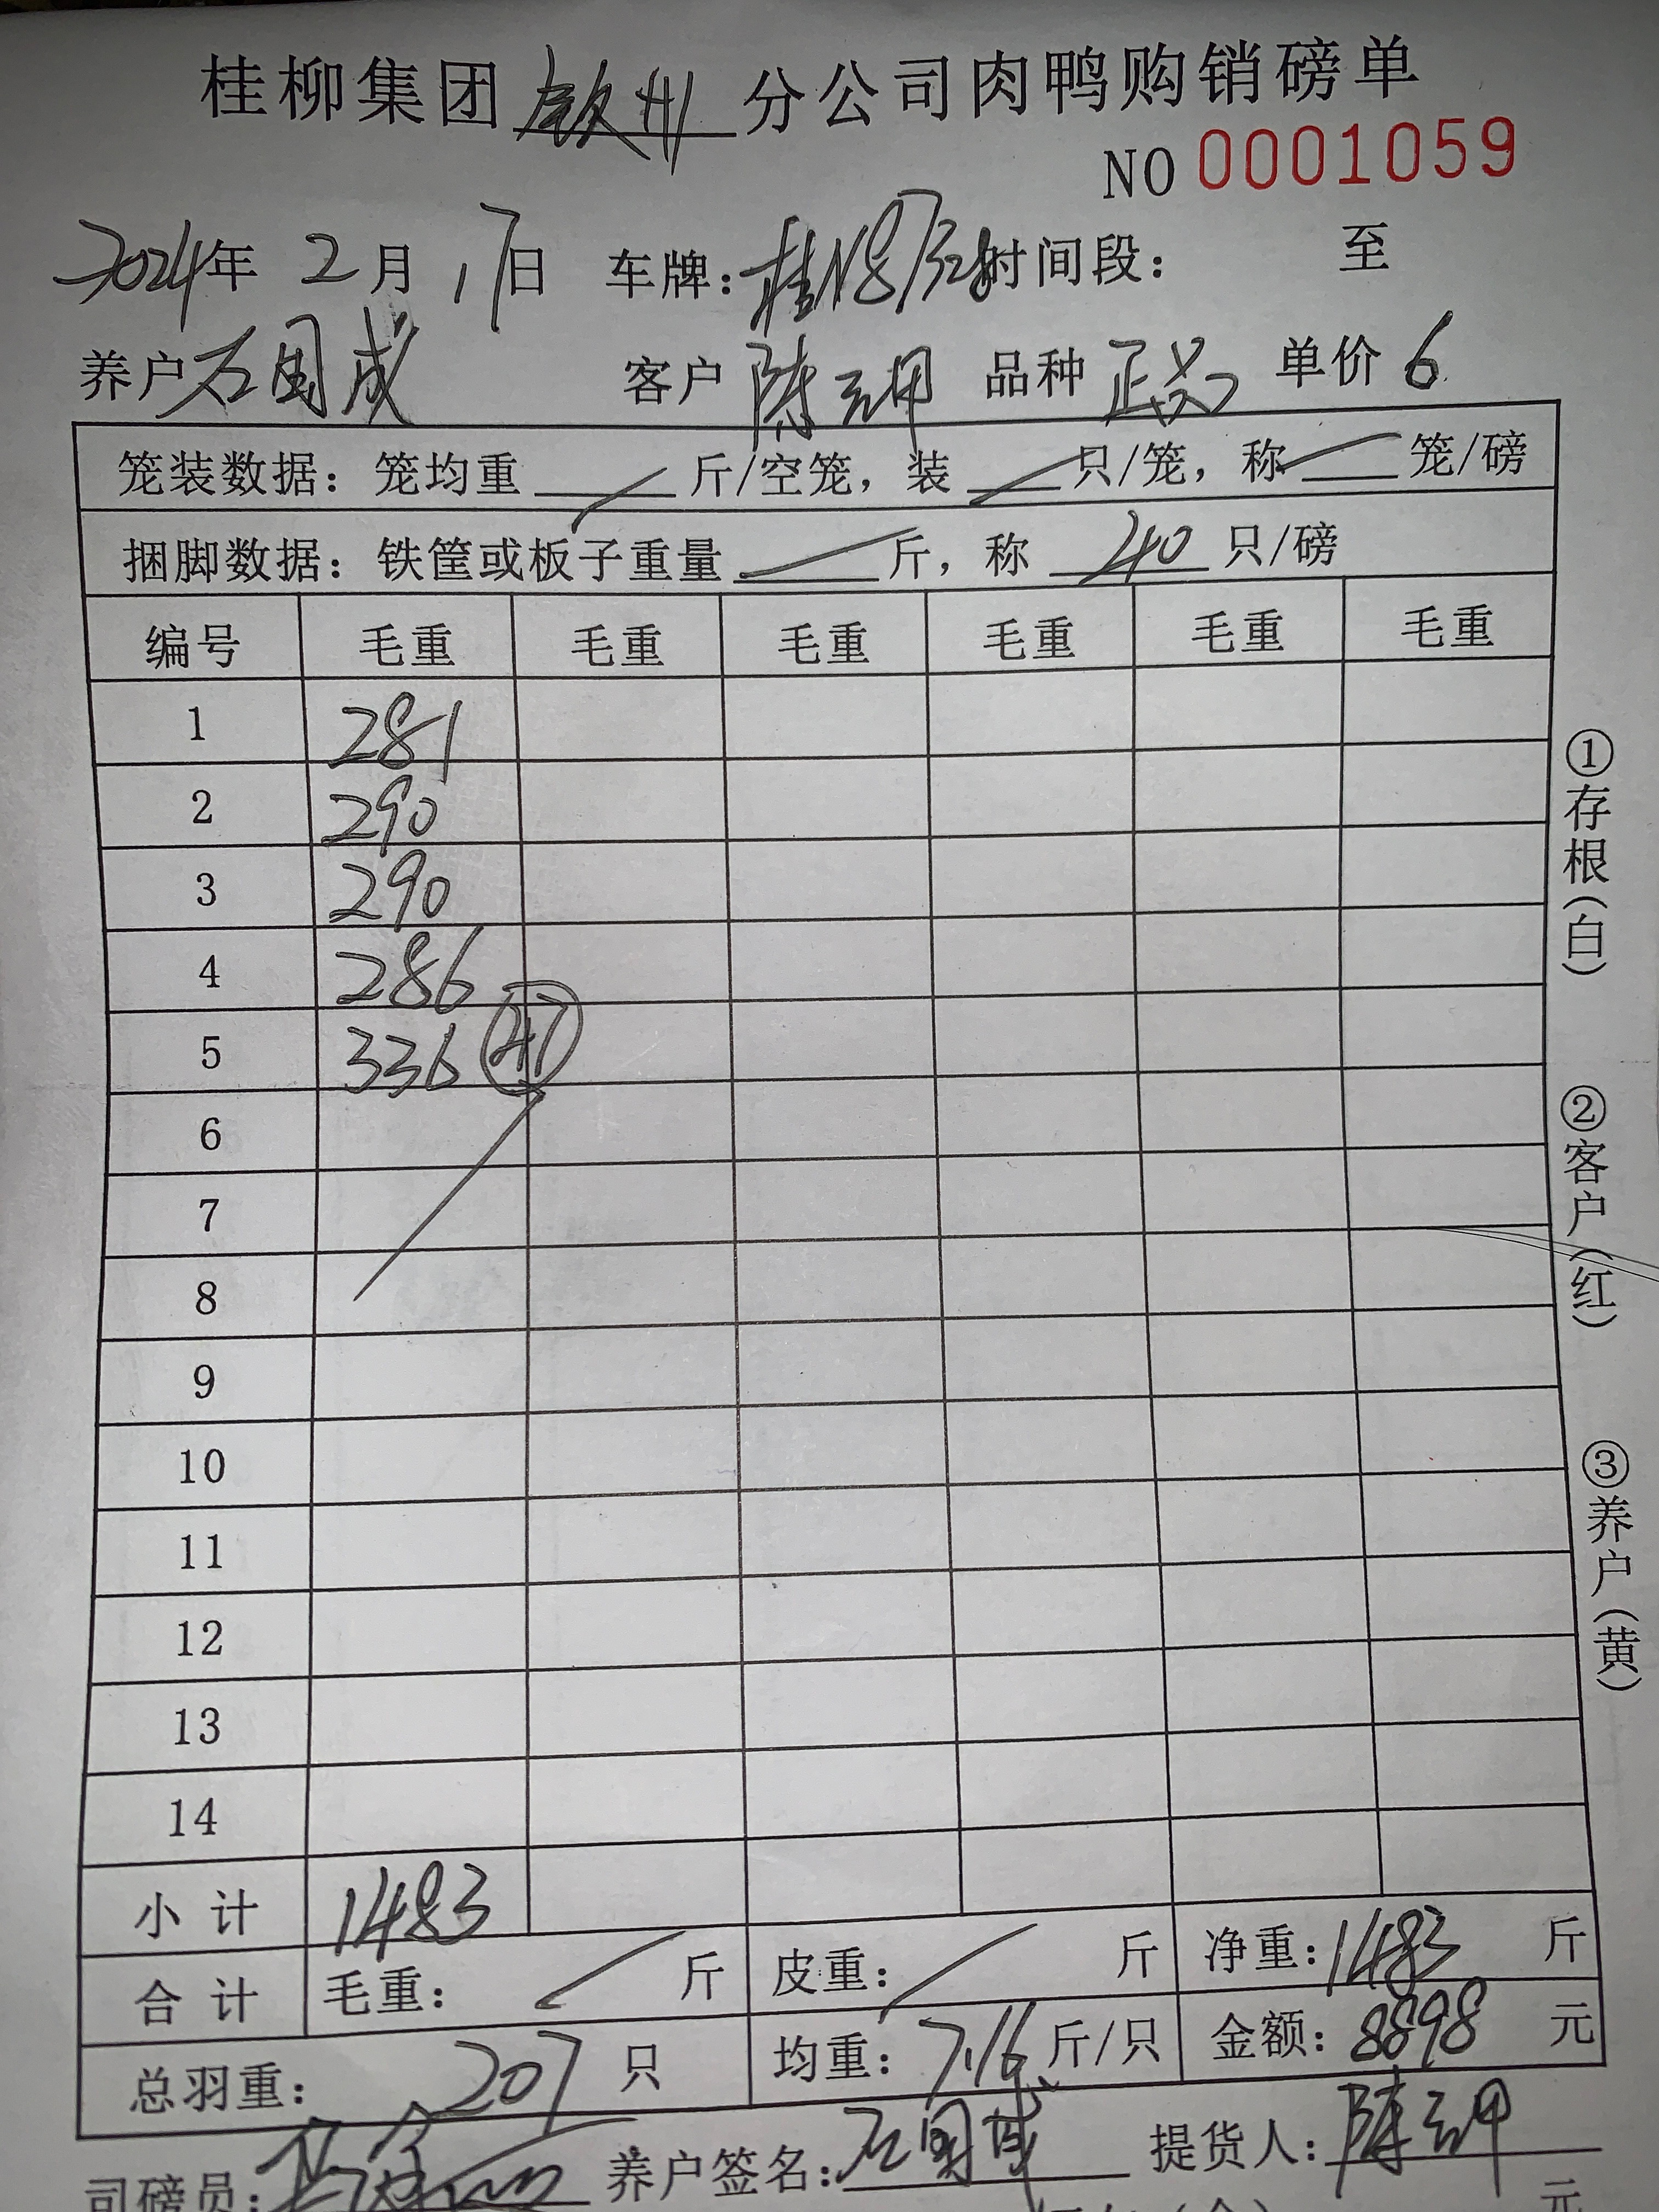 桂柳集团 钦州 分公司肉鸭购销磅单
NO 0001059
2024年 2 月 17日 车牌: 时间段: 至
养户 石国成 客户 陈云甲 品种 单价 6
笼装数据: 笼均重 斤/空笼, 装 只/笼, 称 笼/磅
捆脚数据: 铁筐或板子重量 斤, 称 40 只/磅
编号 毛重 毛重 毛重 毛重 毛重 毛重
1 281
2 290
3 290
4 286
5 336 47
6
7
8
9
10
11
12
13
14
小计 1483
合计 毛重: 斤 皮重: 斤 净重: 1483 斤
总羽重: 207 只 均重: 7.16 斤/只 金额: 8898 元
司磅员: 养户签名: 石国成 提货人: 陈云甲
元
①存根(白)
②客户(红)
③养户(黄)